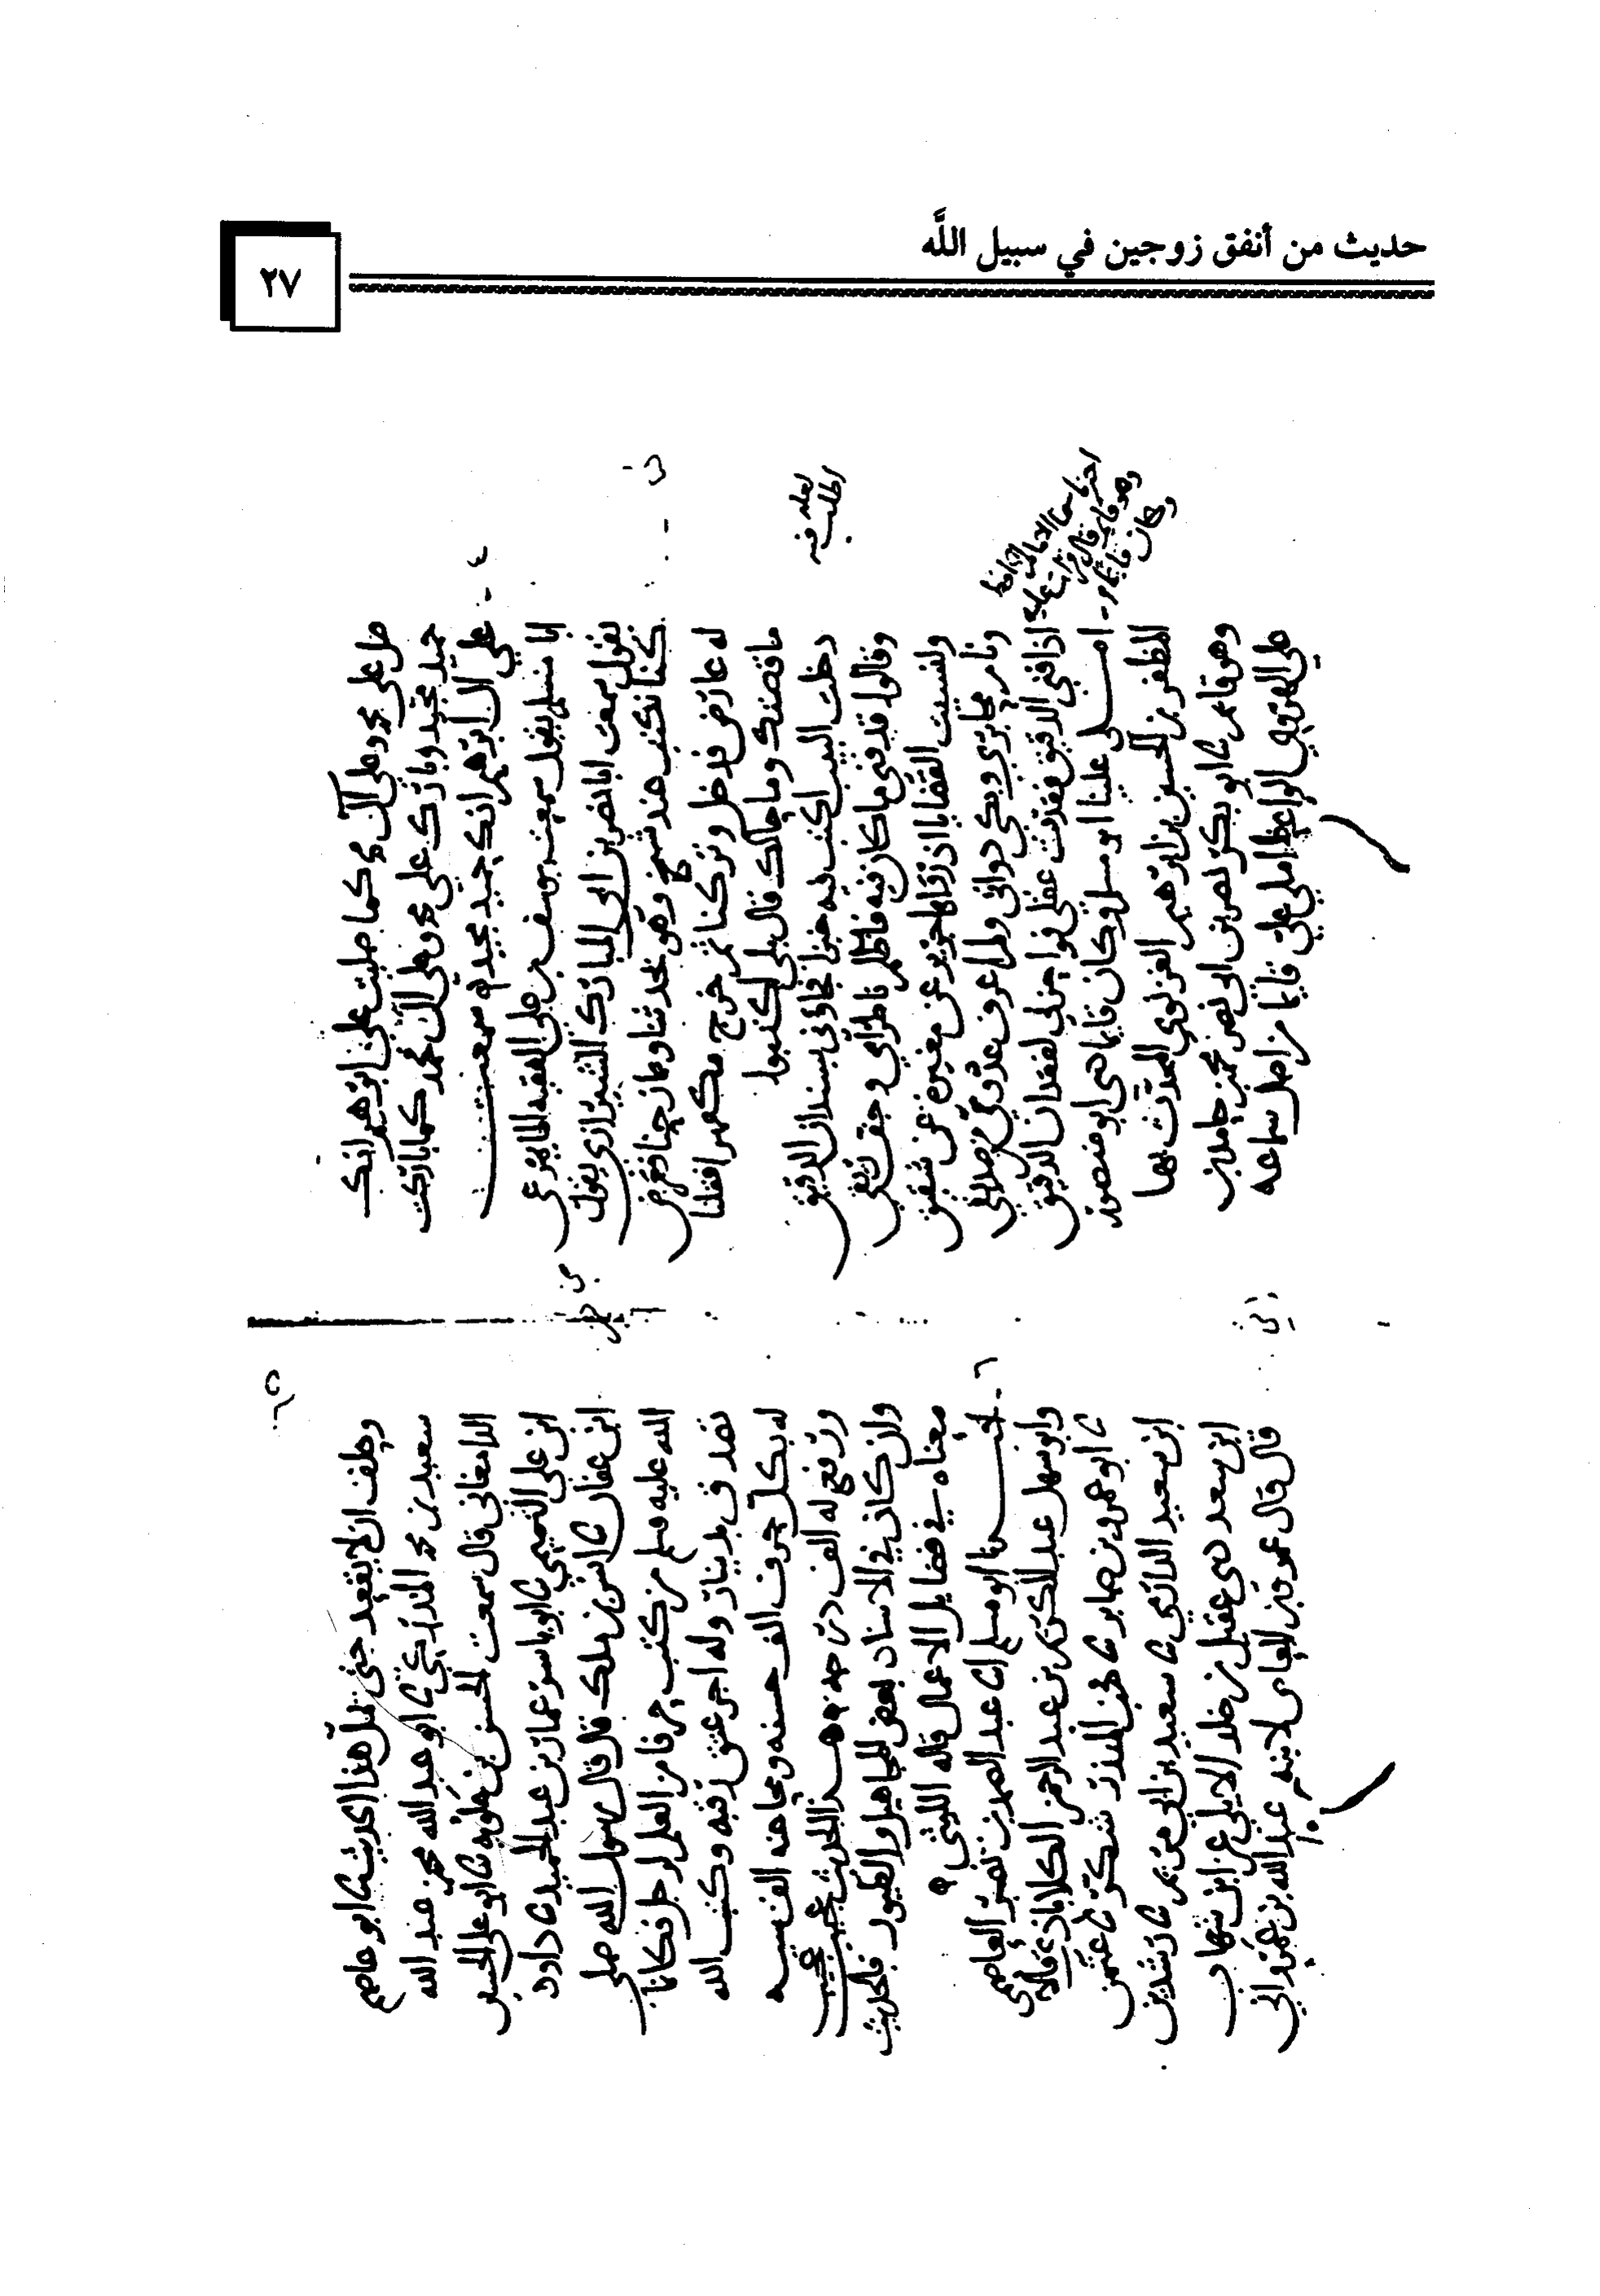 حديث من أنفق زوجين في سبيل اللَّه
٢٧
صل على محمد وعلى آل محمد كما صليت على ابرهيم انك
حميد مجيد وبارك على محمد وعلى آل محمد كما باركت
على آل ابرهيم انك حميد مجيد سمعت
ابا مسلم يقول سمعت يوسف بن علي الفقيه
يقول سمعت ابا نصر بن ابي المبارك الشيرازي يقول
كنا نكتب عند شيخ وهو يحدثنا ومازحنا فعرض
له عارض فدخل وتركنا ثم خرج فقلنا
ما قصتك وما حالك قال بلى اكتبوا
دخلت البيت اكتب فيه خبزا فجاؤني بسندان الدقيق
وقالوا قد فني ما كان فيه فاظلم ناظراي وجف ريقي
ونسيت القضايا اذ رقا جرير عن مغيرة عن شقيق
ونامر محابري وبكى دواتي ولم اعرف عدوي من صديقي
اذا فني الدقيق فقدت عقلي فوا حزني لفقدان الدقيق
املى علينا ابو مسلم وكان قايما حدثني ابو منصور
المظفر بن الحسين بن ابرهيم الغزنوي المحدث بها
وهو قايم ثنا ابو بكر نصر بن ابي نصر محمد بن حامد بن
علي الواعظ املي علي قايما من اصل سماعه
لعله
اطلب فيه
٦٥
وحلف ان لا يقعد حتى يمل هذا الحديث ثنا ابو عاصم
سعيد بن محمد ثنا ابو عبد الله محمد بن عبد الله
الدامغاني قال سمعت الحسن بن علويه ثنا ابو علي الحسين
ابن علي التميمي ثنا ابو ياسر عمار بن عبد المجيد ثنا داود
ابن عفان ثنا انس بن ملك قال قال رسول الله صلى
الله عليه وسلم من كتب حرفا من العلم لرجل فكانما
تصدق بدينار وله اجر عتق رقبه وكتب الله
له بكل حرف الف حسنه ومحا عنه الف سيه
ورفع له الف درجه هذا الحديث عجيب غريب
وان كان في الاسناد بعض المجاهيل والطيور فالحديث
معناه في فضايل الاعمال قاله الليثي
اخبرنا ابو مسلم انا عبد الصمد بن نصر العاصمي
وابو سهل عبد الكريم بن عبد الرحمن الكلاباذي قالا
ثنا ابو عمرو بن صابر ثنا محمد بن المنذر شكر ثنا عثمن
ابن سعيد الدارمي ثنا سعيد بن ابي مريم ثنا رشدين
ابن سعد حدثني عقيل بن خلد الايلي عن ابن شهاب
قال قال عمرو بن العاص لابنه عبد الله بن عمرو اي